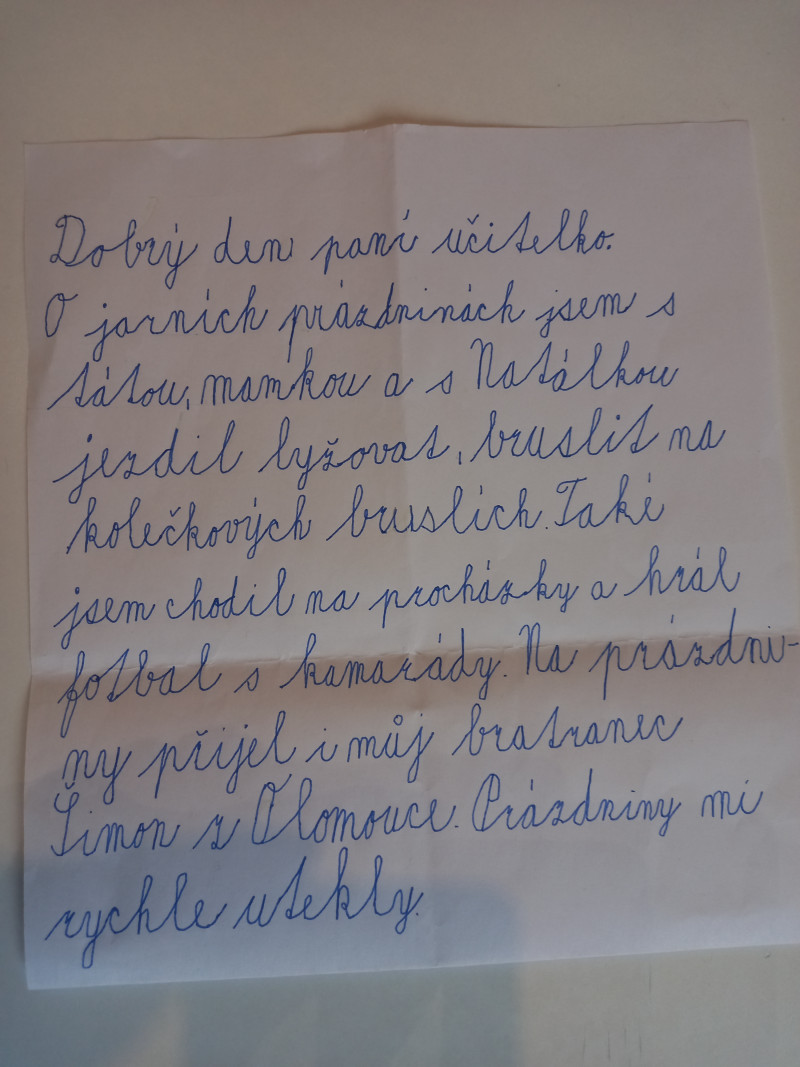 Dobrý den paní učitelko.
O jarních prázdninách jsem s
tátou, mamkou a s Natálkou
jezdil lyžovat, bruslit na
kolečkových bruslích. Také
jsem chodil na procházky a hrál
fotbal s kamarády. Na prázdni-
ny přijel i můj bratranec
Šimon z Olomouce. Prázdniny mi
rychle utekly.